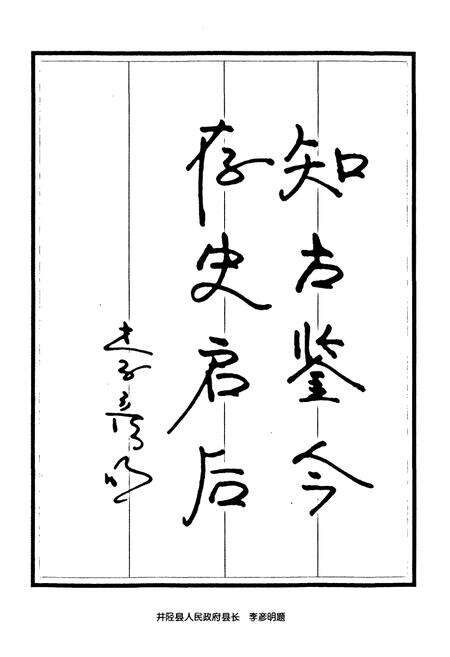 知古鉴今
存史启后
李彦明
井陉县人民政府县长 李彦明题